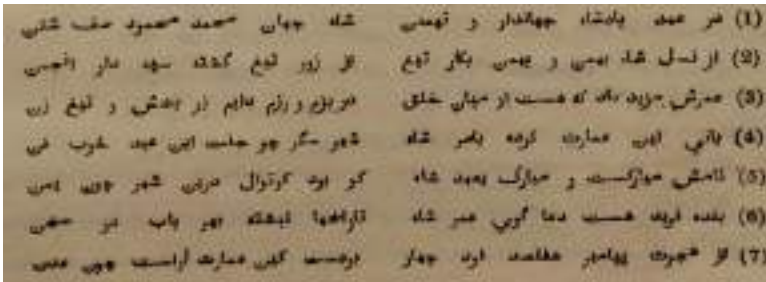 (1) در عهد پادشاه جهاندار و تهمتن شاه جهان محمد محمود صف شکن
(2) از نسل شاه بهمن و بهمن بکار تیغ از زور تیغ گشته سپه دار انجمن
(3) عمرش مزید باد که هست از میان خلق در بزم و رزم دایم زر بخش و تیغ زن
(4) بانی این عمارت کرده بامر شاه شهر سگر چو جلست این عید خوب فن
(5) نامش مبارکست و مبارک بعهد شاه کو بود کوتوال درین شهر چون یمن
(6) بنده فرید هست دعا گوی عمر شاه تاریخها نبشته بهر باب در سخن
(7) از هجرت پیامبر هفتصد نود چهار درست کین عمارت آراست چون عدن